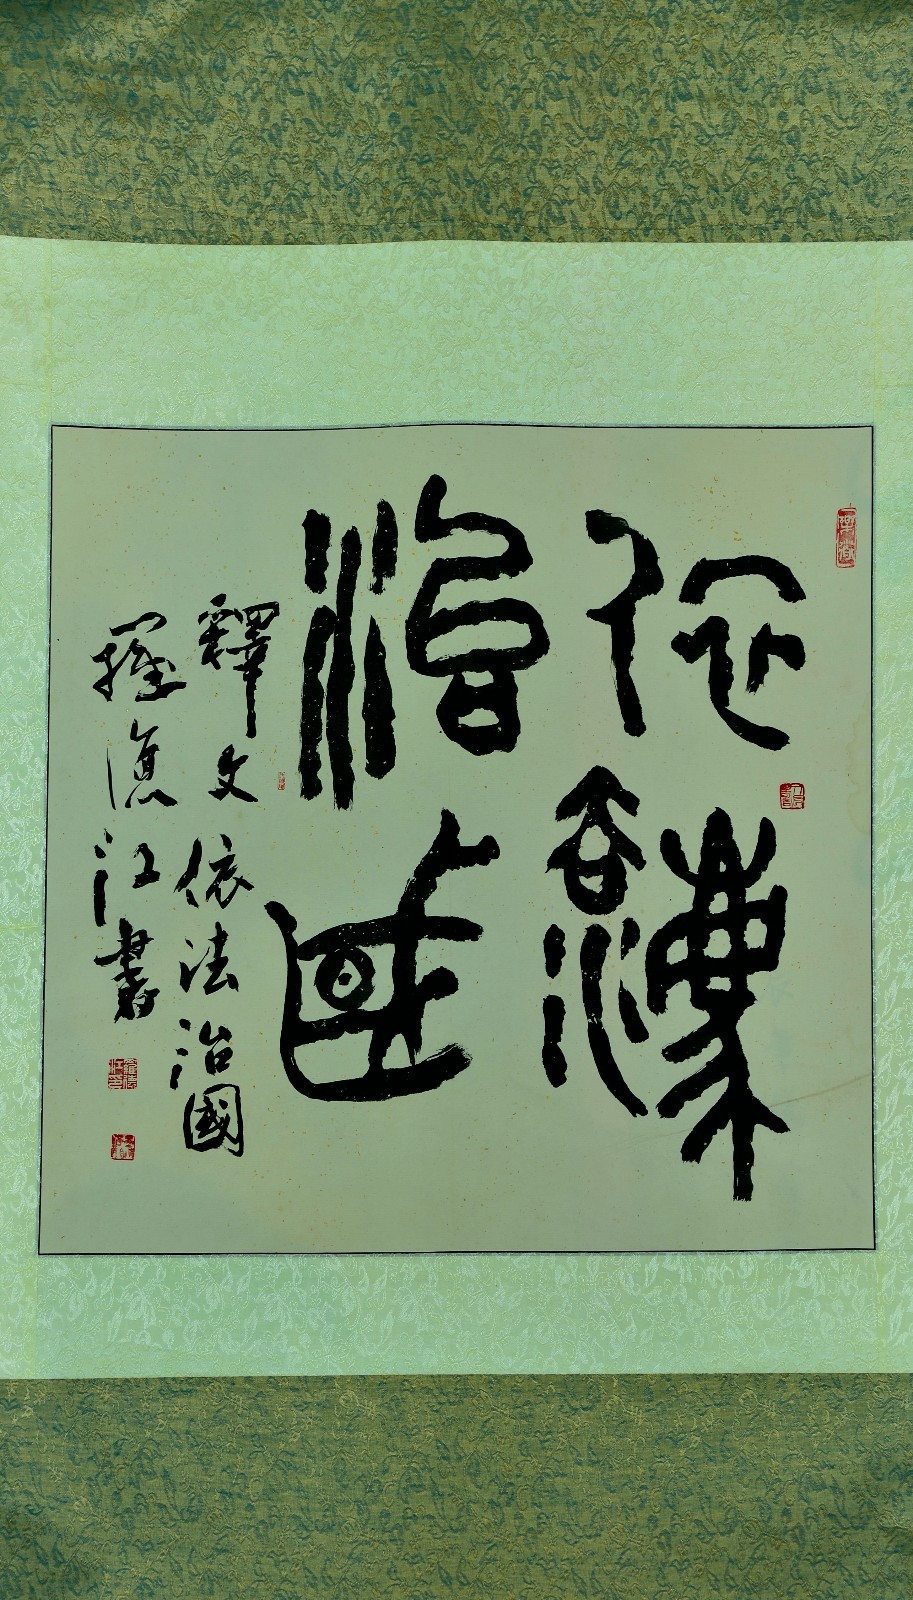 依灋
治國
釋文依法治國
羅德江書